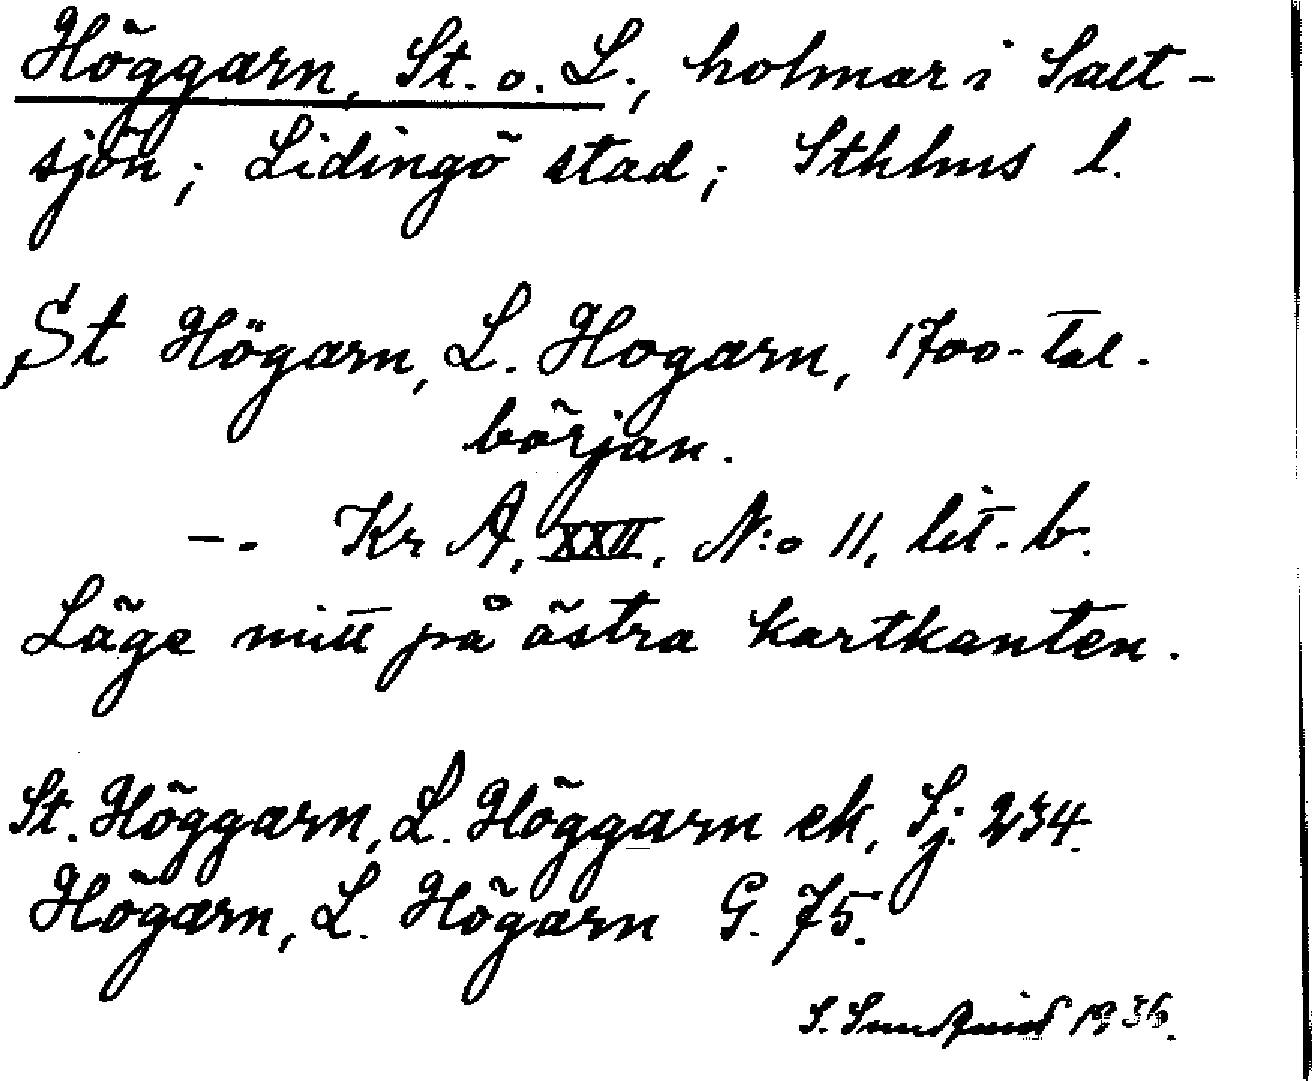 Höggarn, St. o. L., holmar i Salt-
sjön; Lidingö stad; Sthlms l.
St Högarn, L. Hogarn, 1700-tal.
början.
—. Kr A, XXII, N:o 11, lit. b.
Läge mitt på östra kartkanten.
St. Höggarn, L. Höggarn ek. Sj. 234.
Högarn, L. Högarn G. 75.
S. 1936.